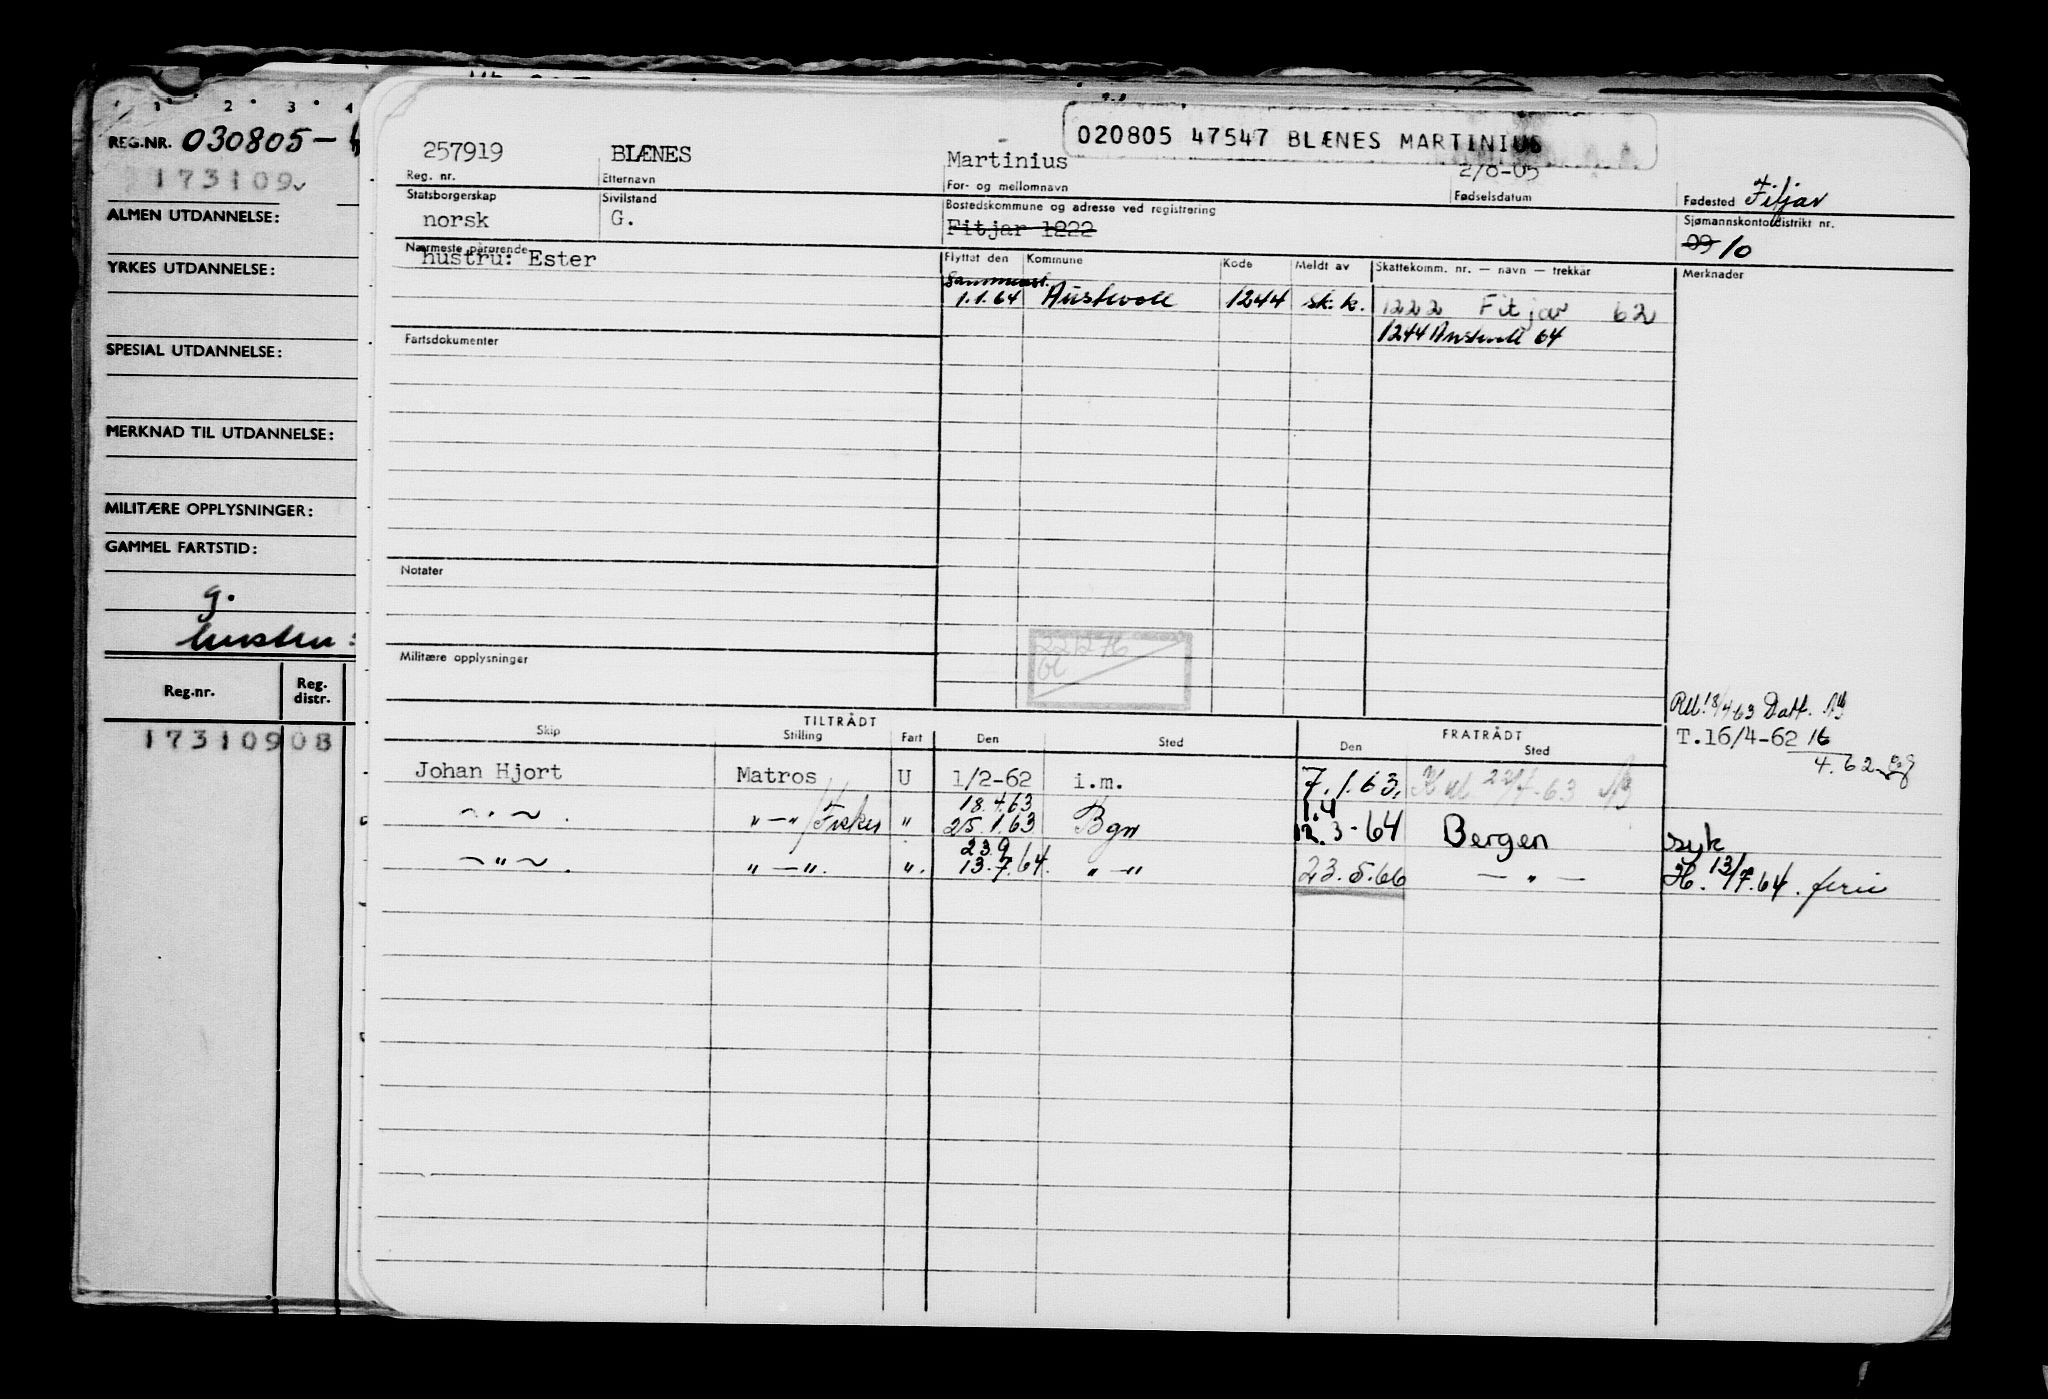 1 2 3 4
REG.NR. 030805-
173109
ALMEN UTDANNELSE:
YRKES UTDANNELSE:
SPESIAL UTDANNELSE:
MERKNAD TIL UTDANNELSE:
MILITÆRE OPPLYSNINGER:
GAMMEL FARTSTID:
g.
hustru:
Reg.nr. Reg. distr.
173109 08
020805 47547 BLÆNES MARTINIUS
257919 BLÆNES Martinius 2/8-05 Fitjar
Reg. nr. Etternavn For- og mellomnavn Fødselsdatum Fødested
Statsborgerskap Sivilstand Bostedskommune og adresse ved registrering Sjømannskontordistrikt nr.
norsk G. Fitjar 1222 09 10
Nærmeste pårørende Flyttet den Kommune Kode Meldt av Skattekomm. nr. — navn — trekkår Merknader
hustru: Ester
1.1.64 Austevoll 1244 sk.k. 1222 Fitjar 62
1244 Austevoll 64
Fartsdokumenter
Notater
Militære opplysninger
221276
TILTRÅDT FRATRÅDT
Skip Stilling Fart Den Sted Den Sted
T.16/4-62 16
4.62
Johan Hjort Matros U 1/2-62 i.m. 7.1.63,
18.4.63 1.4
— " — . " — " / Fisker " 25.1.63 Bgn 12.3-64 Bergen syk
23.9
— " — . " — ". ". 13.7.64. " — " 23.5.66 — " — H. 13/7.64. ferie